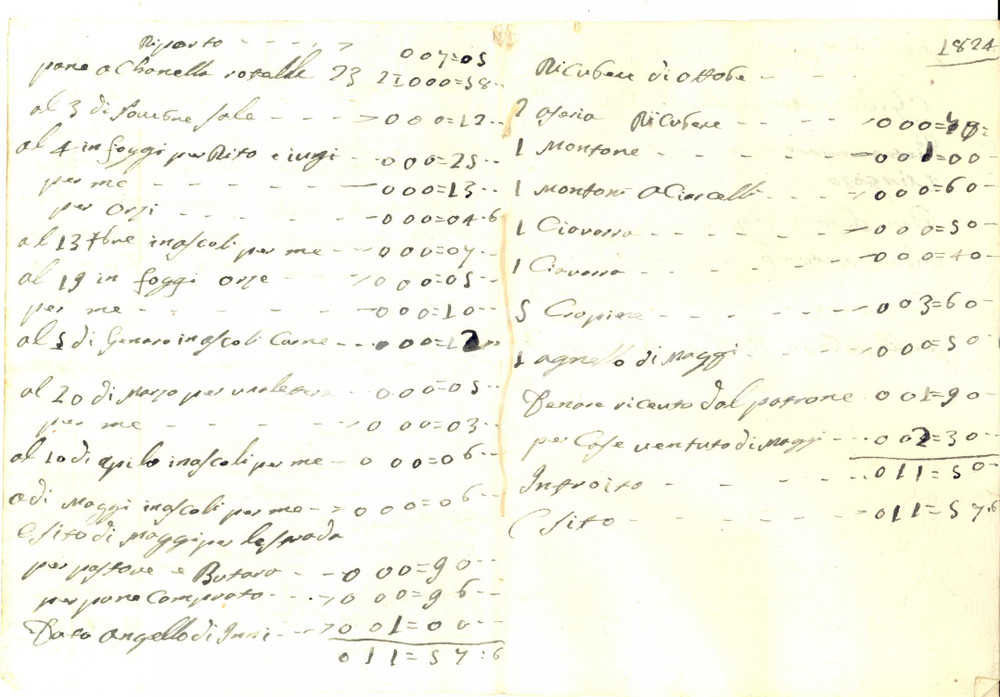 Riporto - - - - 007=05
pane a Chanella rotelle 23 21 000=58--
al 3 di Nouebre sale - - - 000=12--
al 4 in foggi per Rito e iungi - 000=25--
per me - - - - - 000=13--
per Orzi - - - - - 000=04-6
al 13 Xbre in ascoli per me - - 000=07--
al 19 in foggi orzo - - - 000=05--
per me - - - - - 000=10--
al 5 di Genaro in ascoli Carne - - - 000=12
al 20 di Marzo per una letera - - 000=05--
per me - - - - - 000=03--
al 10 di aprilo in ascoli per me - - 000=06--
a di Maggi in ascoli per me - - 000=06--
Esito di Maggi per la strada
per pastore e Butaro - - - 000=90--
per pane Comprato - - - 000=96--
Dato Angello di - - - 001=00--
011=57:6
1824
Ricubere di ottobe - - -
2 Ricubere - - - 000=
1 Montone - - - - - 001=00
1 Montone a Ciarcelli - - - 000=60
1 Ciauarra - - - - - 000=50
1 Ciauarra - - - - - 000=40
5 Crapiere - - - - - 003=60
1 agnello di Maggi - - - 000=50
Denare riceuto dal patrone - 001=90
per Cose uentute di Maggi - - 002=30
Introito - - - - - 011=50
Esito - - - - - 011=57.6